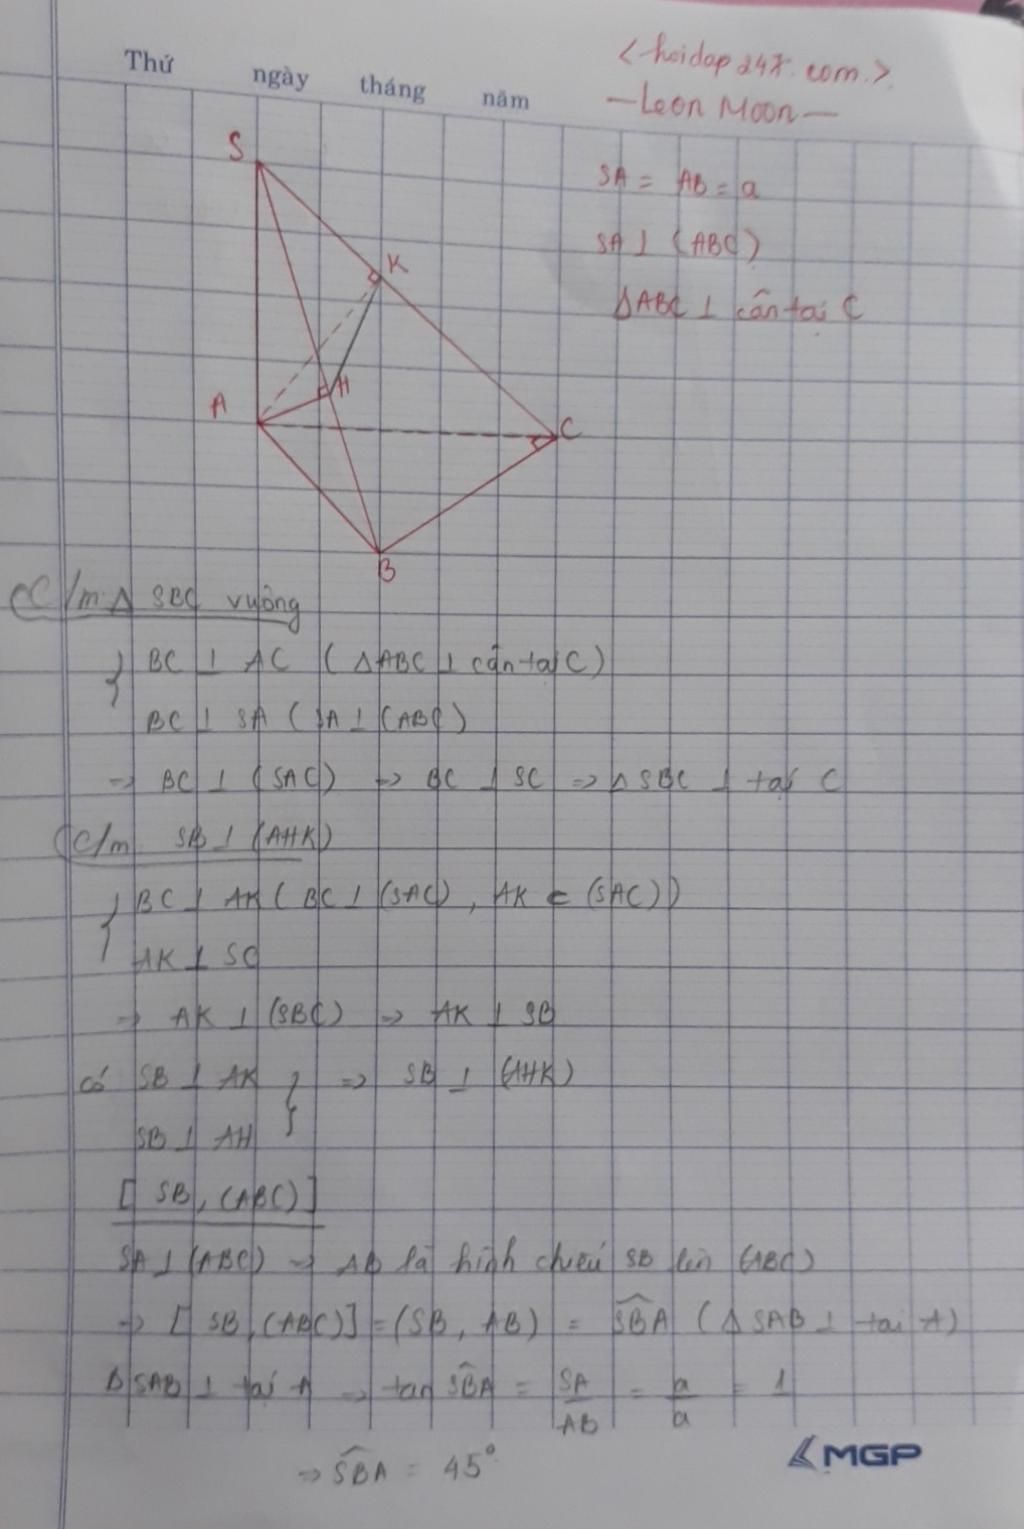 Thứ ngày tháng năm
<hoidap247.com>
—Leon Moon—
S
SA = AB = a
SA ⊥ (ABC)
K
ΔABC ⊥ cân tại C
H
A
C
B
C/m Δ SBC vuông
{ BC ⊥ AC (ΔABC ⊥ cân tại C)
BC ⊥ SA (SA ⊥ (ABC)
=> BC ⊥ (SAC) => BC ⊥ SC => Δ SBC ⊥ tại C
C/m SB ⊥ (AHK)
{ BC ⊥ AK (BC ⊥ (SAC), AK ⊂ (SAC))
AK ⊥ SC
=> AK ⊥ (SBC) => AK ⊥ SB
có SB ⊥ AK } => SB ⊥ (AHK)
SB ⊥ AH
[SB, (ABC)]
SA ⊥ (ABC) => AB là hình chiếu SB lên (ABC)
=> [SB, (ABC)] = (SB, AB) = \widehat{SBA} (Δ SAB ⊥ tại A)
Δ SAB ⊥ tại A => tan \widehat{SBA} = SA/AB = a/a = 1
=> \widehat{SBA} = 45°
MGP